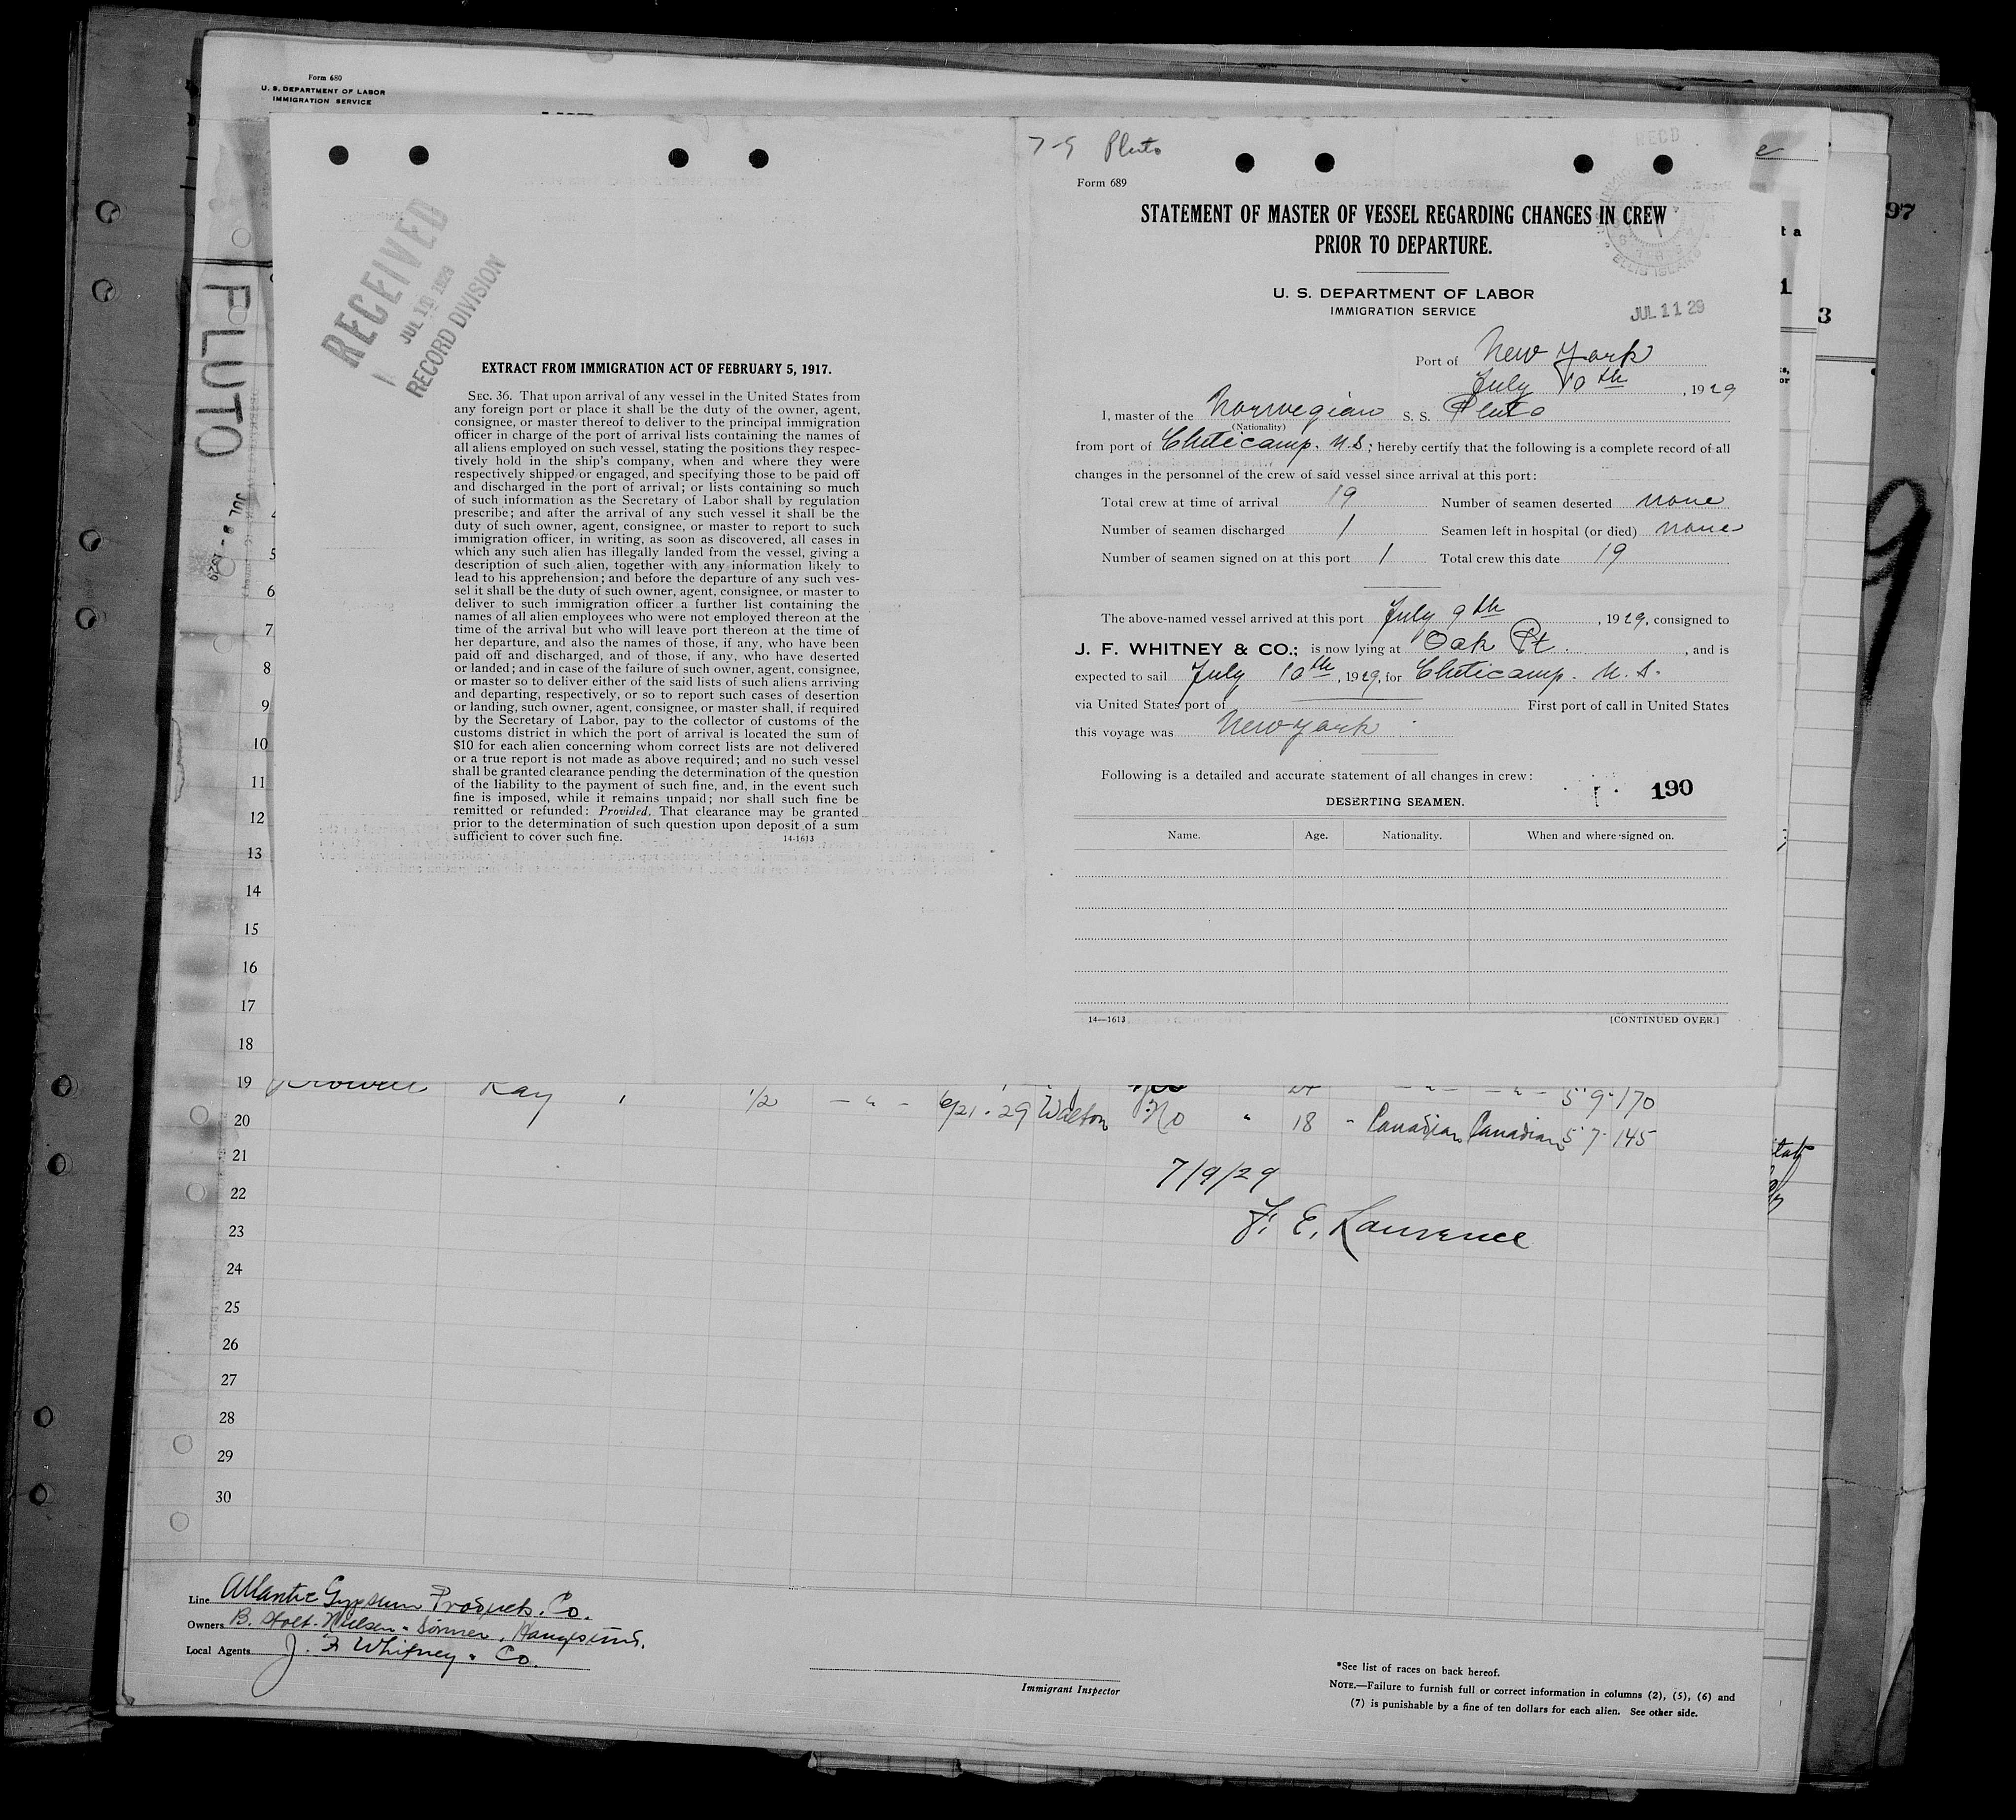 Form 680
U. S. DEPARTMENT OF LABOR
IMMIGRATION SERVICE
PLUTO
RECEIVED
JUL 11 1929
RECORD DIVISION
EXTRACT FROM IMMIGRATION ACT OF FEBRUARY 5, 1917.
SEC. 36. That upon arrival of any vessel in the United States from
any foreign port or place it shall be the duty of the owner, agent,
consignee, or master thereof to deliver to the principal immigration
officer in charge of the port of arrival lists containing the names of
all aliens employed on such vessel, stating the positions they respec-
tively hold in the ship's company, when and where they were
respectively shipped or engaged, and specifying those to be paid off
and discharged in the port of arrival; or lists containing so much
of such information as the Secretary of Labor shall by regulation
prescribe; and after the arrival of any such vessel it shall be the
duty of such owner, agent, consignee, or master to report to such
immigration officer, in writing, as soon as discovered, all cases in
which any such alien has illegally landed from the vessel, giving a
description of such alien, together with any information likely to
lead to his apprehension; and before the departure of any such ves-
sel it shall be the duty of such owner, agent, consignee, or master to
deliver to such immigration officer a further list containing the
names of all alien employees who were not employed thereon at the
time of the arrival but who will leave port thereon at the time of
her departure, and also the names of those, if any, who have been
paid off and discharged, and of those, if any, who have deserted
or landed; and in case of the failure of such owner, agent, consignee,
or master so to deliver either of the said lists of such aliens arriving
and departing, respectively, or so to report such cases of desertion
or landing, such owner, agent, consignee, or master shall, if required
by the Secretary of Labor, pay to the collector of customs of the
customs district in which the port of arrival is located the sum of
$10 for each alien concerning whom correct lists are not delivered
or a true report is not made as above required; and no such vessel
shall be granted clearance pending the determination of the question
of the liability to the payment of such fine, and, in the event such
fine is imposed, while it remains unpaid; nor shall such fine be
remitted or refunded: Provided, That clearance may be granted
prior to the determination of such question upon deposit of a sum
sufficient to cover such fine. 14-1613
7-9 Pluto
RECD
Form 689
STATEMENT OF MASTER OF VESSEL REGARDING CHANGES IN CREW
PRIOR TO DEPARTURE.
ELLIS ISLAND
U. S. DEPARTMENT OF LABOR
IMMIGRATION SERVICE
JUL 11 29
Port of New York
July 10th, 1929
I, master of the Norwegian S. S. Pluto
(Nationality)
from port of Cheticamp. N.S; hereby certify that the following is a complete record of all
changes in the personnel of the crew of said vessel since arrival at this port:
Total crew at time of arrival 19 Number of seamen deserted none
Number of seamen discharged 1 Seamen left in hospital (or died) none
Number of seamen signed on at this port 1 Total crew this date 19
The above-named vessel arrived at this port July 9th, 1929, consigned to
J. F. WHITNEY & CO.; is now lying at Oak Pt., and is
expected to sail July 10th, 1929, for Cheticamp. N. S.
via United States port of First port of call in United States
this voyage was New York
Following is a detailed and accurate statement of all changes in crew:
190
DESERTING SEAMEN.
Name. Age. Nationality. When and where signed on.
14—1613 [CONTINUED OVER.]
97
3
9
5
6
7
8
9
10
11
12
13
14
15
16
17
18
19 5 9 170
20 Ray 1/2 6/21-29 Walton No " 18 " Canadian Canadian 5 7 145
21
7/9/29
22
F. E. Lawrence
23
24
25
26
27
28
29
30
Line Atlantic Gypsum Products. Co.
Owners B. Stolt-Nielsen & Sønner, Haugesund.
Local Agents J. F. Whitney & Co.
Immigrant Inspector
*See list of races on back hereof.
NOTE.—Failure to furnish full or correct information in columns (2), (5), (6) and
(7) is punishable by a fine of ten dollars for each alien. See other side.